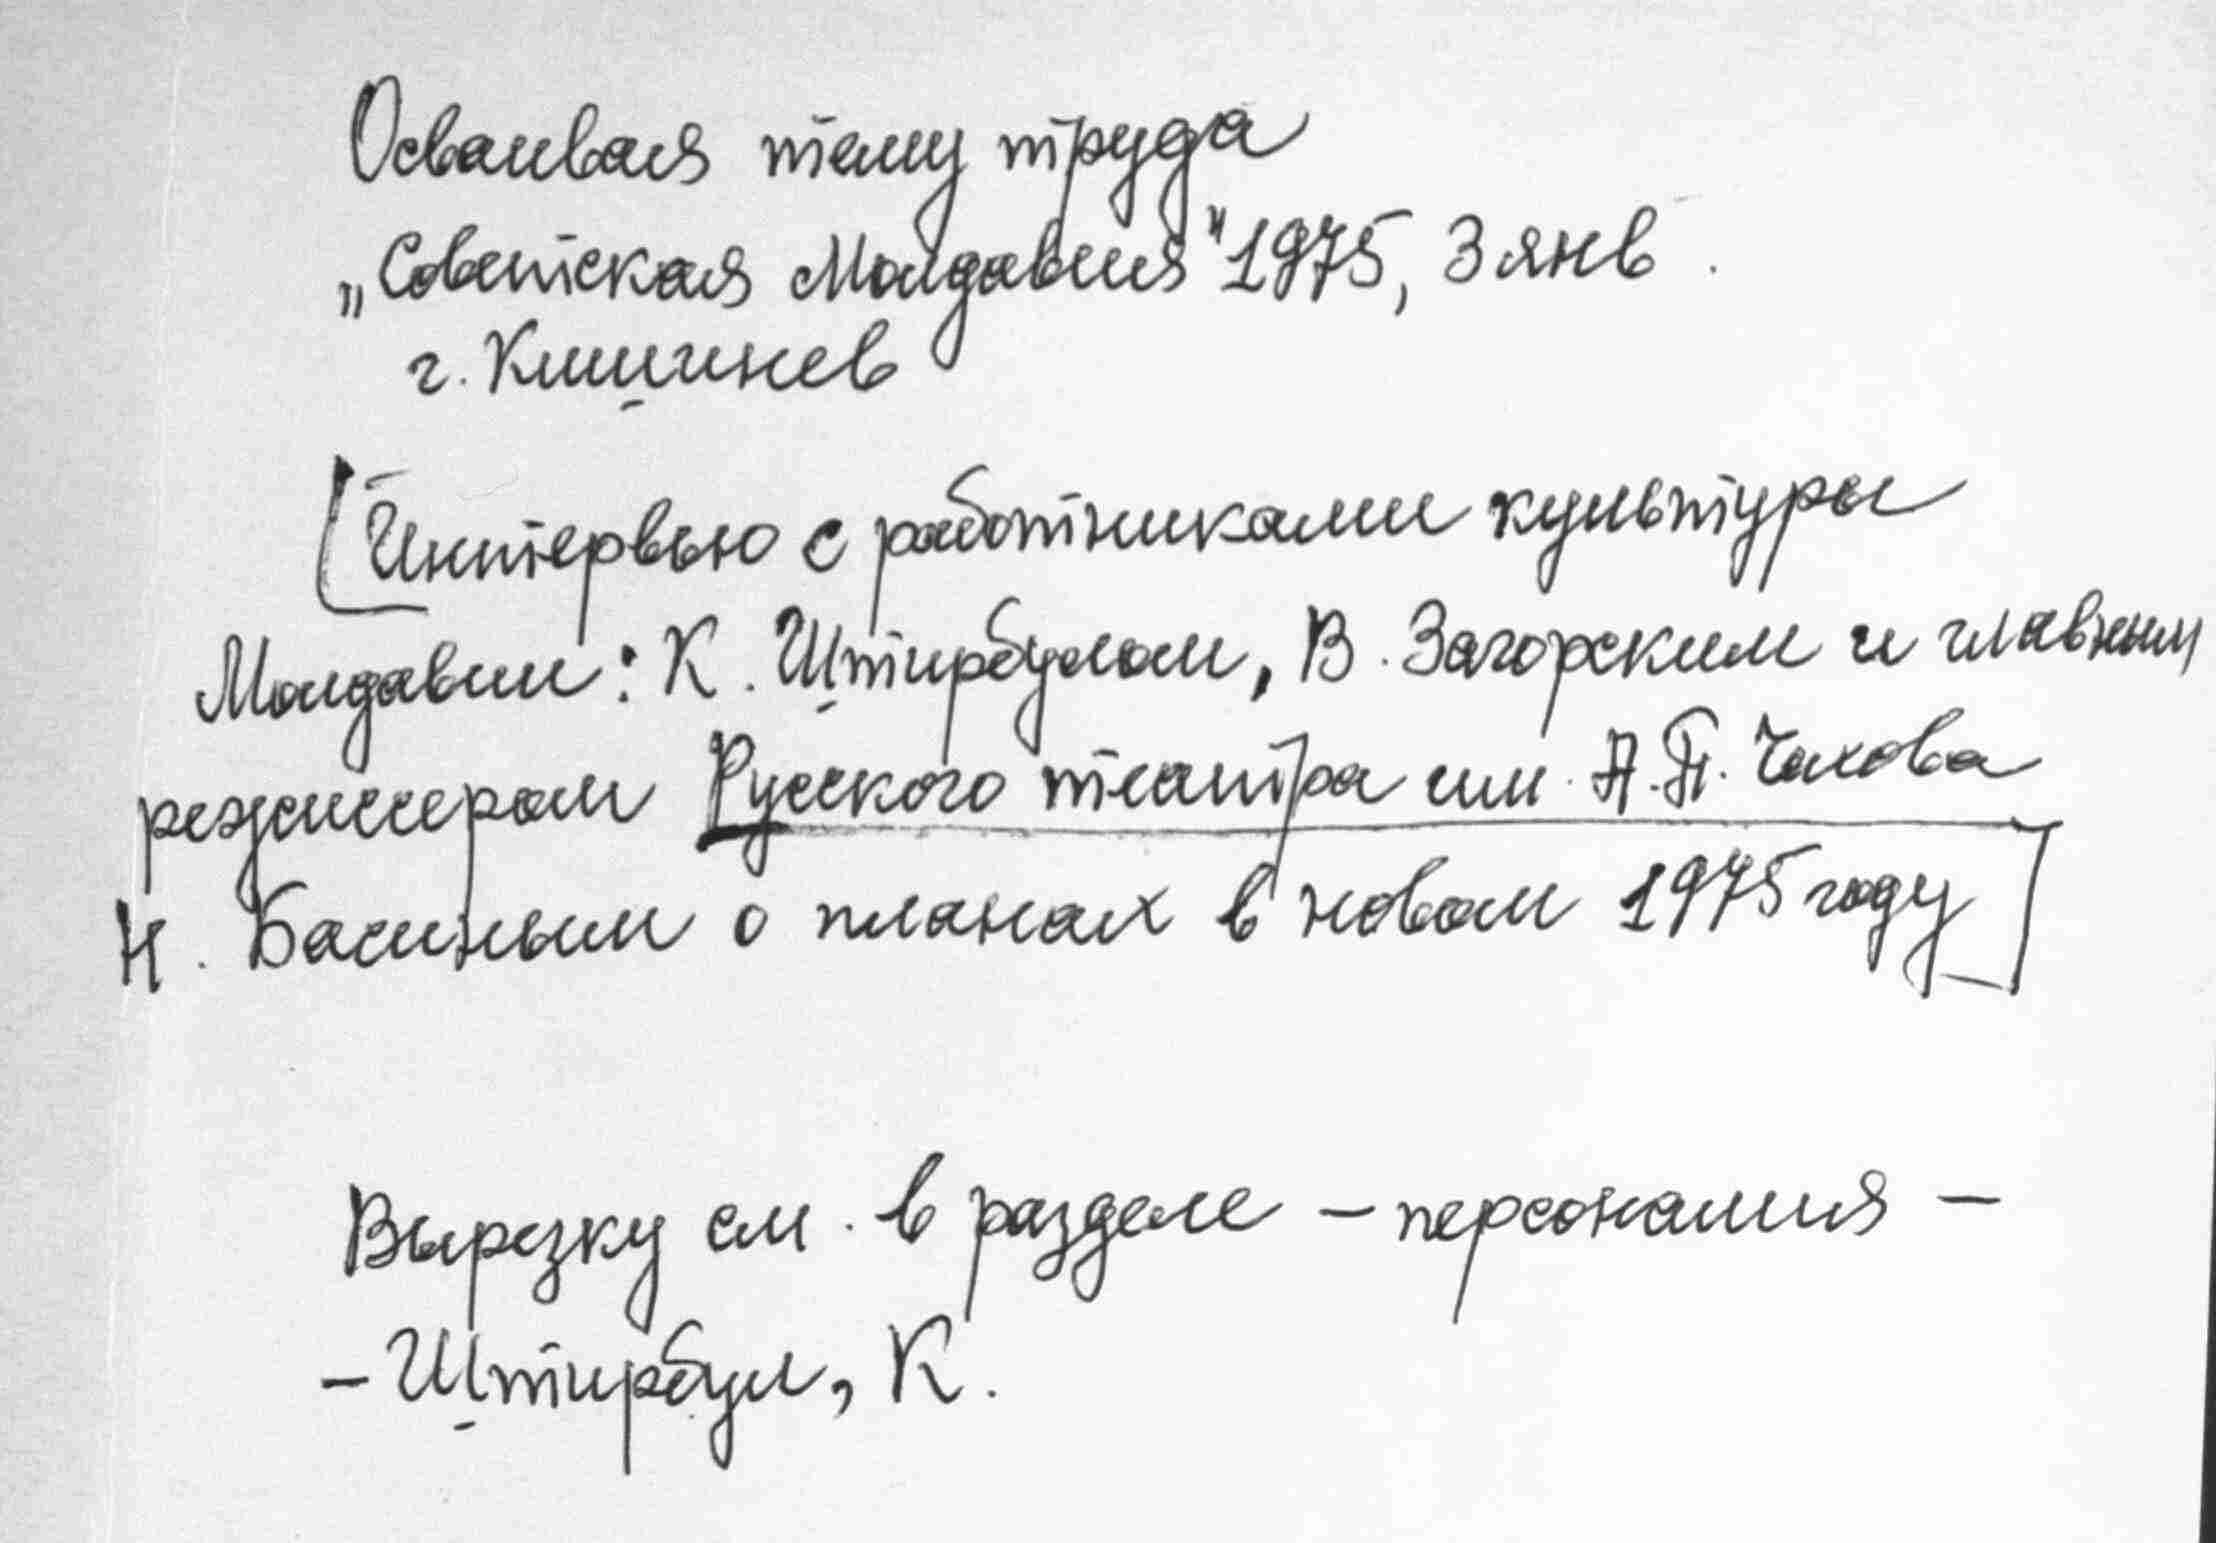 Осваивая тему труда
„Советская Молдавия" 1975, 3 янв.
г. Кишинев
[Интервью с работниками культуры
Молдавии: К. Штирбулом, В. Загорским и главным
режиссером Русского театра им. А.П. Чехова
Н. Басиным о планах в новом 1975 году]
Вырезку см. в разделе – персоналия –
– Штирбул, К.